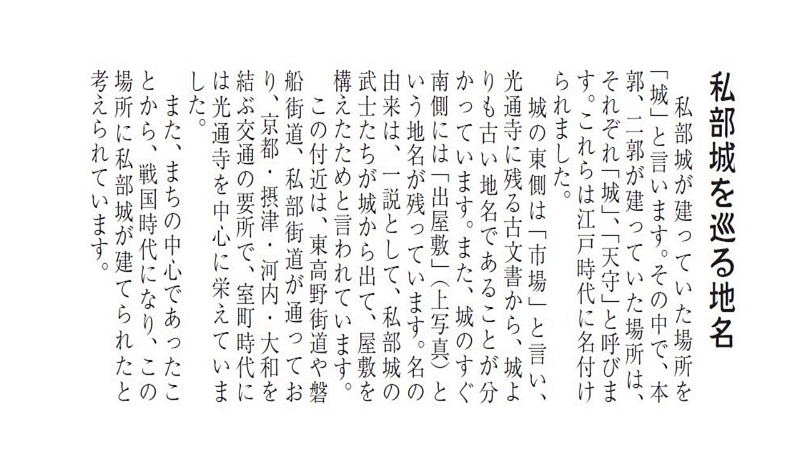 私部城を巡る地名
私部城が建っていた場所を
「城」と言います。その中で、本
郭、二郭が建っていた場所は、
それぞれ「城」、「天守」と呼びま
す。これらは江戸時代に名付け
られました。
城の東側は「市場」と言い、
光通寺に残る古文書から、城よ
りも古い地名であることが分
かっています。また、城のすぐ
南側には「出屋敷」（上写真）と
いう地名が残っています。名の
由来は、一説として、私部城の
武士たちが城から出て、屋敷を
構えたためと言われています。
この付近は、東高野街道や磐
船街道、私部街道が通ってお
り、京都・摂津・河内・大和を
結ぶ交通の要所で、室町時代に
は光通寺を中心に栄えていま
した。
また、まちの中心であったこ
とから、戦国時代になり、この
場所に私部城が建てられたと
考えられています。